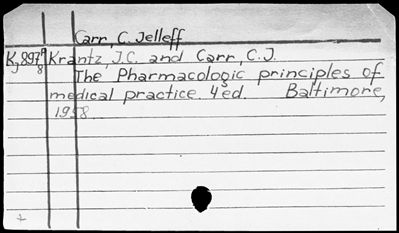 Carr, C. Jelleff
Krantz, J.C. and Carr, C.J.
The Pharmacologic principles of
medical practice. 4ed. Baltimore,
1958